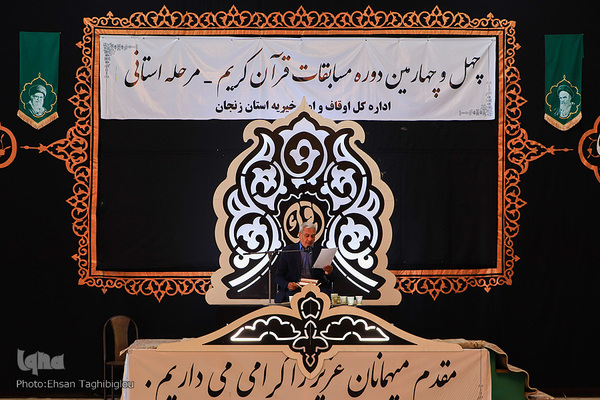 چهل و چهارمین دوره مسابقات قرآن کریم - مرحله استانی
اداره کل اوقاف و امور خیریه استان زنجان
مقدم میهمانان عزیز را گرامی می داریم .
iqna
Photo:Ehsan Taghibiglou